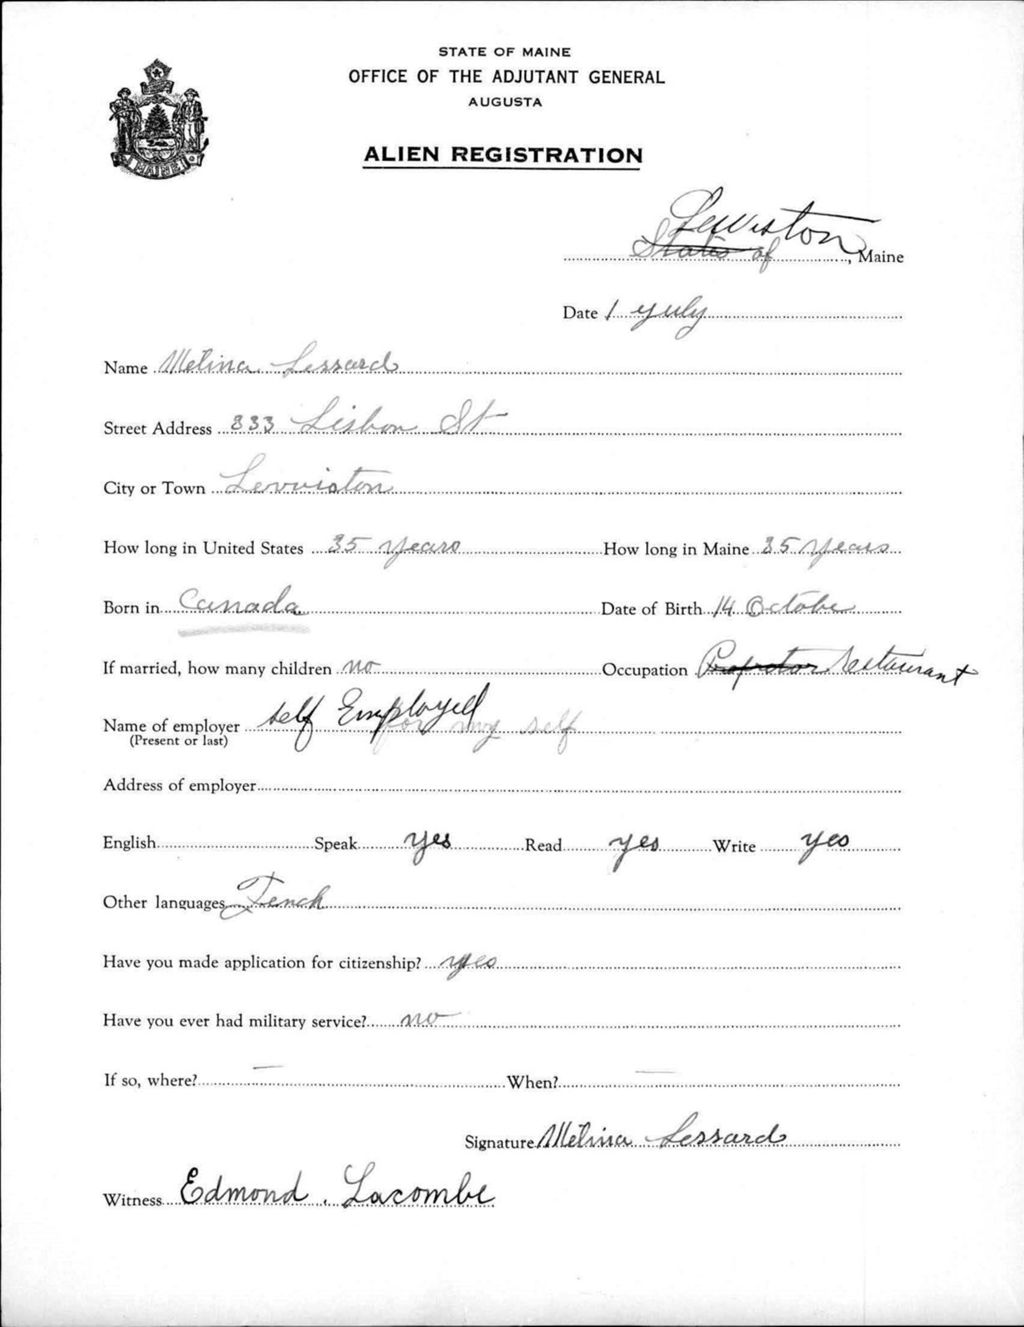 STATE OF MAINE
OFFICE OF THE ADJUTANT GENERAL
AUGUSTA
ALIEN REGISTRATION
MAINE
Lewiston
States of, Maine
Date 1 yuly
Name Melina Lessard
Street Address 333 Lisbon St
City or Town Lewiston
How long in United States 35 years How long in Maine 35 years
Born in Canada Date of Birth 14 Octobe
If married, how many children no Occupation Propretor restaurant
Name of employer self Employed for my self
(Present or last)
Address of employer
English Speak yes Read yes Write yes
Other languages Fench
Have you made application for citizenship? yes
Have you ever had military service? no
If so, where? — When? —
Signature Melina Lessard
Witness Edmond Lacombe